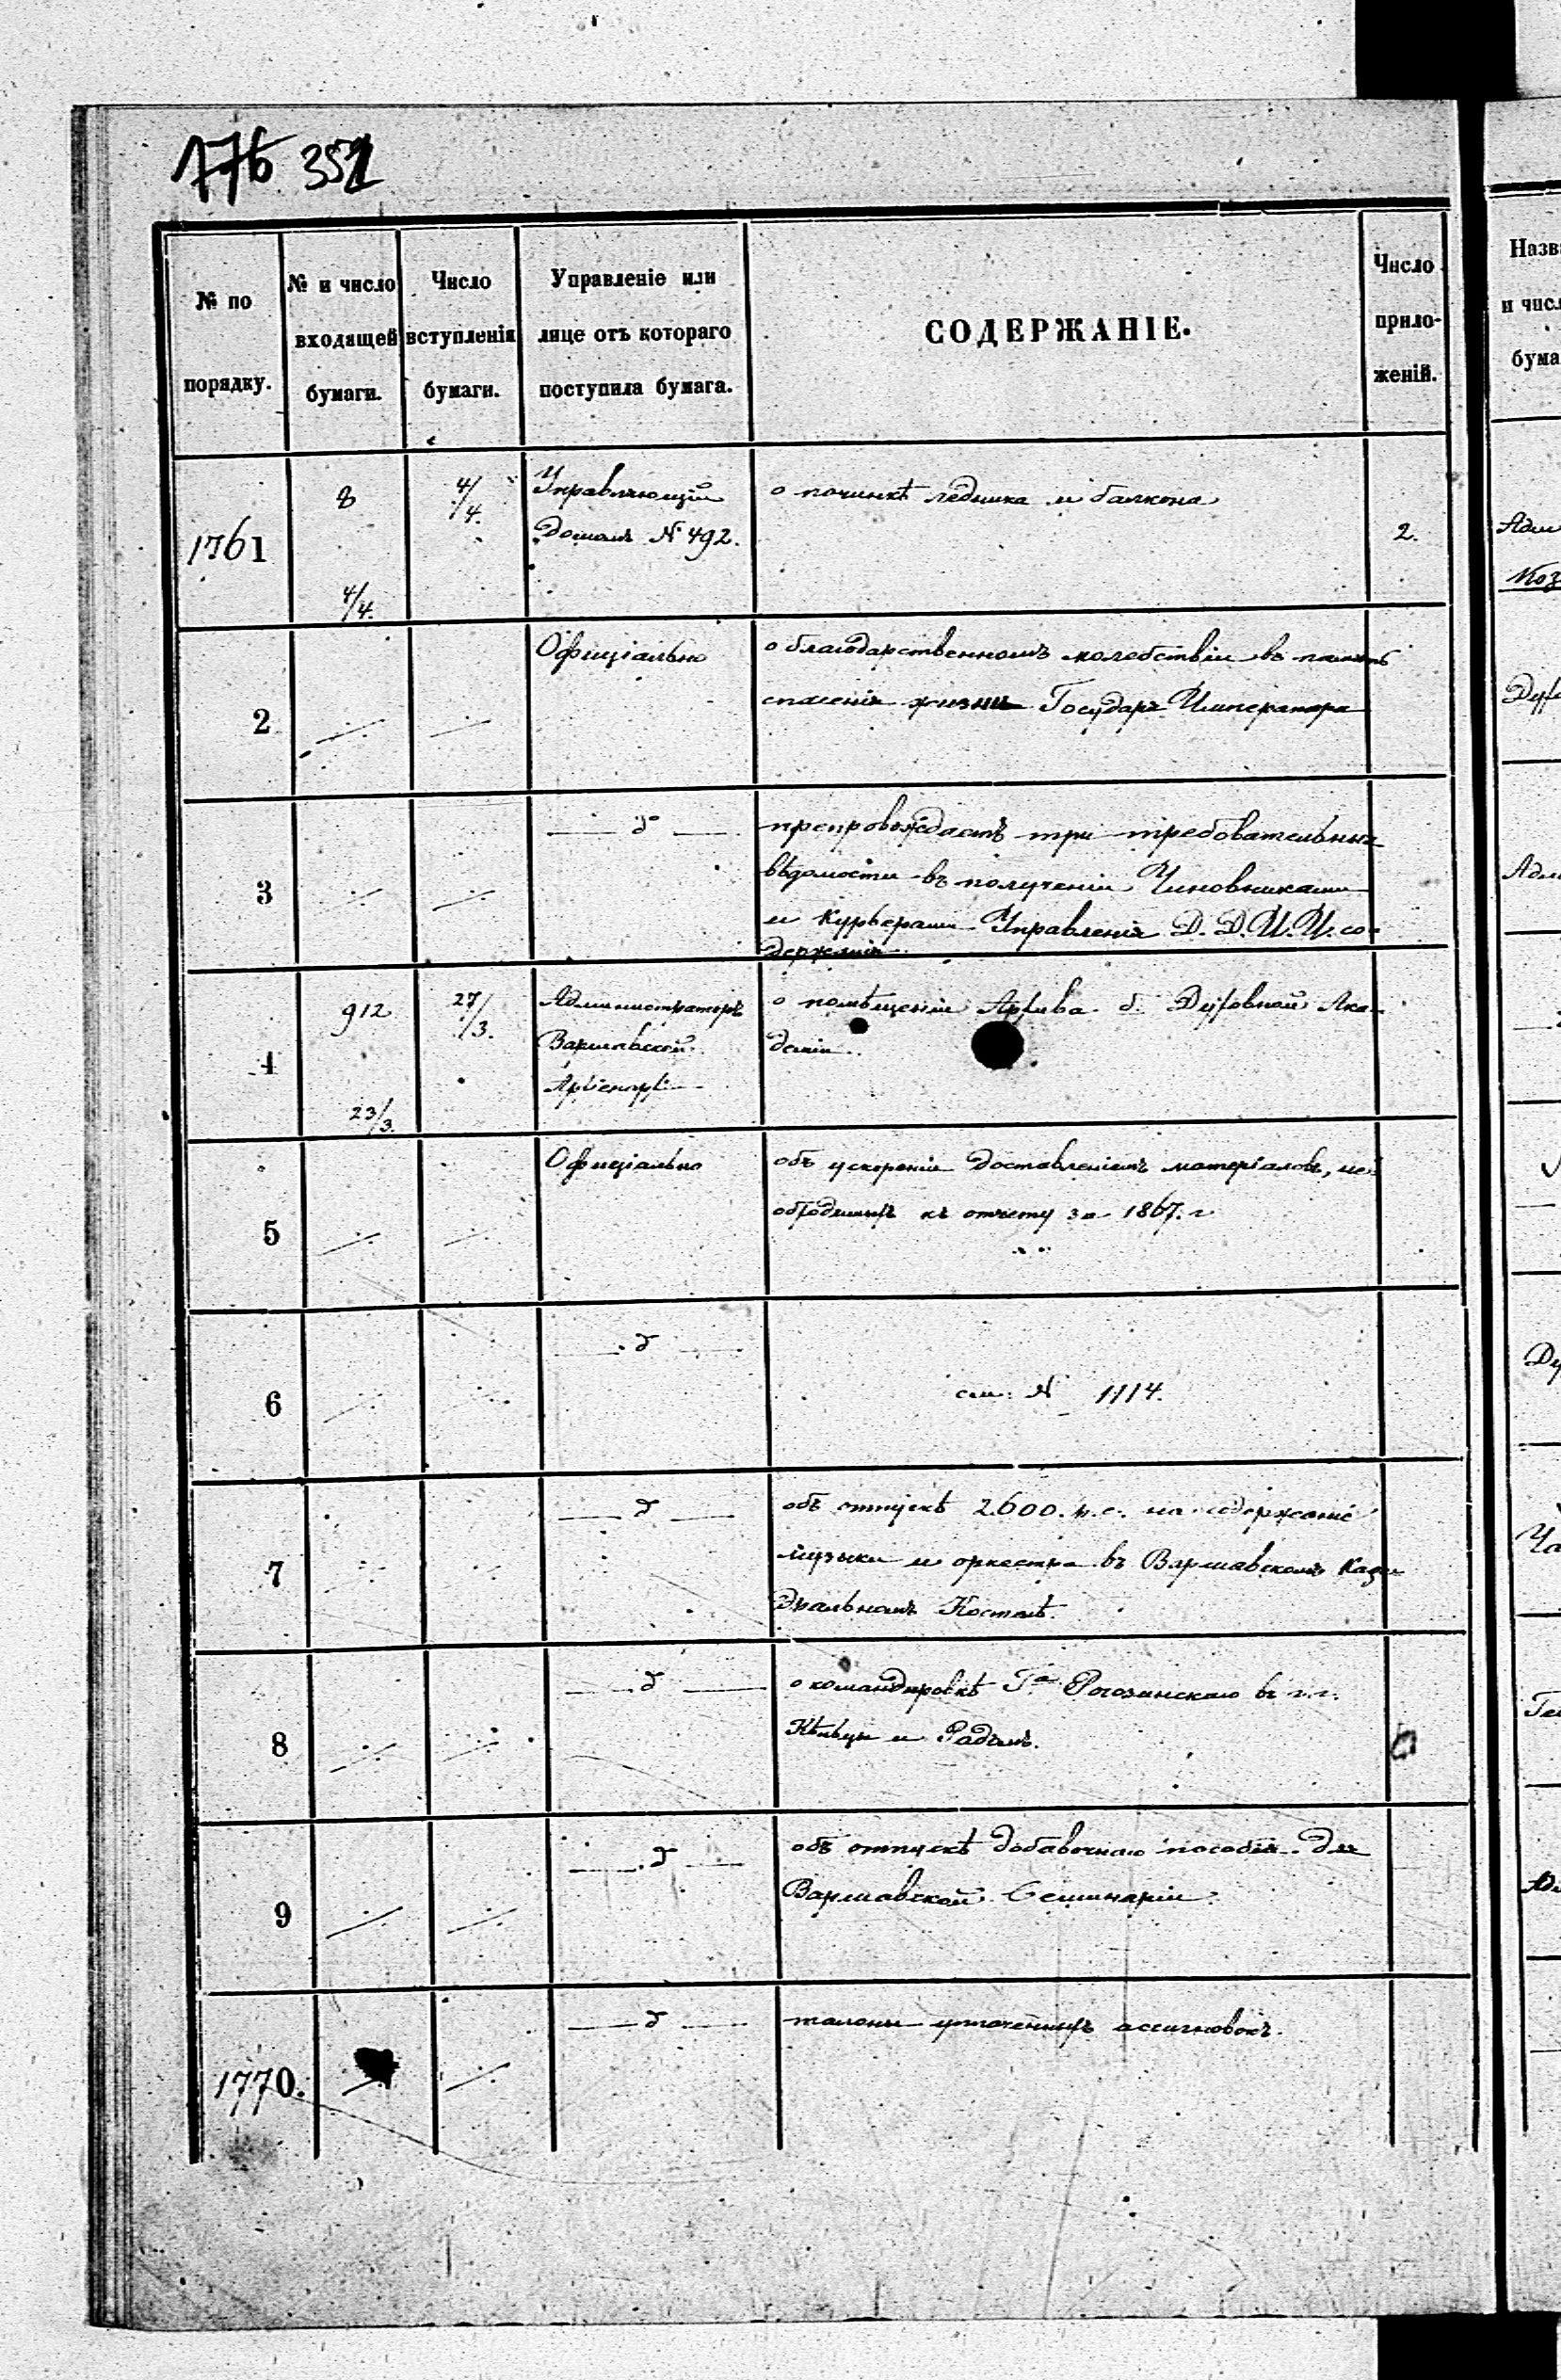 176 352
№ по порядку.
№ и число входящей бумаги.
Число вступленія бумаги.
Управленіе или лице отъ котораго поступила бумага.
СОДЕРЖАНІЕ.
Число прило-женій.
1761
8
4/4.
4/4.
Управляющій
Домомъ № 492.
о починкѣ ледника и балкона
2.
2
Офиціально
о благодарственномъ молебствіи въ память
спасенія жизни Государя Императора
3
д°
препровождаетъ три требовательныя
вѣдомости въ полученіи Чиновниками
и Курьерами Управленія Д. Д. И. И. со-
держанія.
4
912
23/3.
27/3.
Администраторъ
Варшавской
Архіепарх:
о помѣщеніи Архива б. Духовной Ака-
деміи.
5
Офиціально
объ ускореніи доставленіемъ матеріаловъ, не-
обходимыхъ къ отчету за 1867. г.
6
д
см: № 1114.
7
д
объ отпускѣ 2600. р. с. на содержаніе
музыки и оркестра въ Варшавскомъ Каѳе
дральномъ Костелѣ.
8
д
о командировкѣ Га Рогозинскаго въ г.г.
Кѣльцы и Радомъ.
9
д
объ отпускѣ добавочнаго пособія для
Варшавской Семинаріи.
1770.
д
талоны уплаченныхъ ассигновокъ.
Назв
и числ
бума
Адм
Коз
Дух
Адм
Ду
Ча
Ге